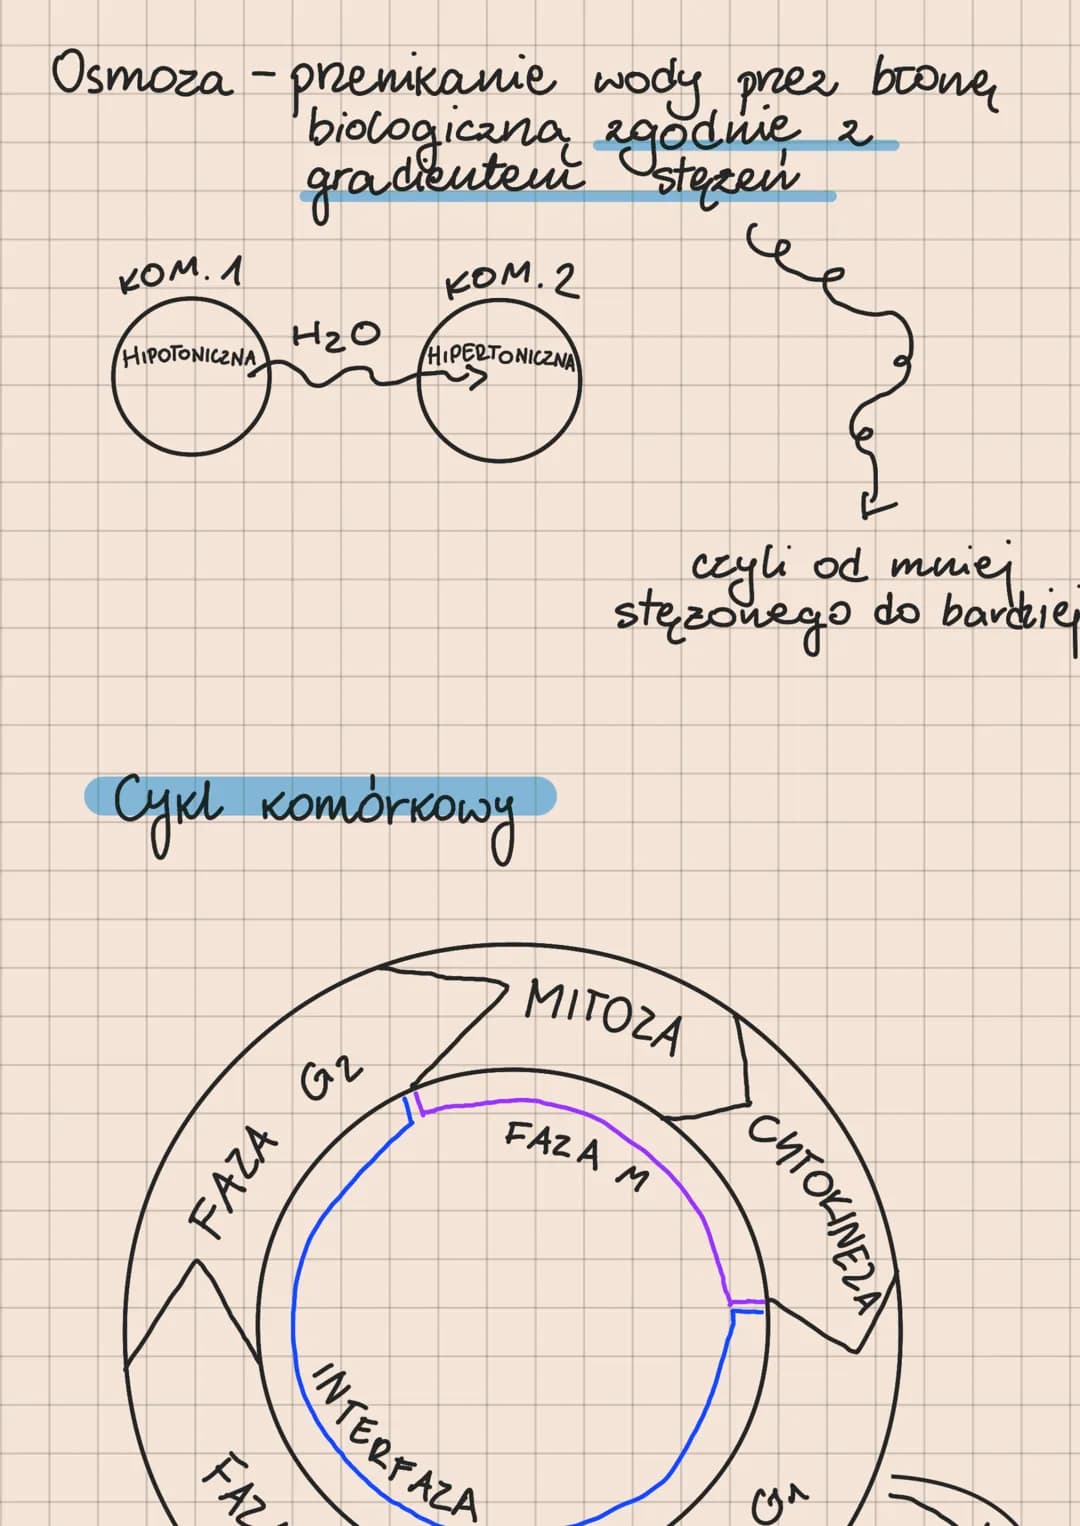 Osmoza - przenikanie wody przez błonę
biologiczną zgodnie z
gradientem stężeń
KOM. 1
KOM. 2
HIPOTONICZNA
H2O
HIPERTONICZNA
czyli od mniej
stężonego do bardziej
Cykl komórkowy
MITOZA
FAZA G2
FAZA M
CYTOKINEZA
INTERFAZA
FAZA
G1